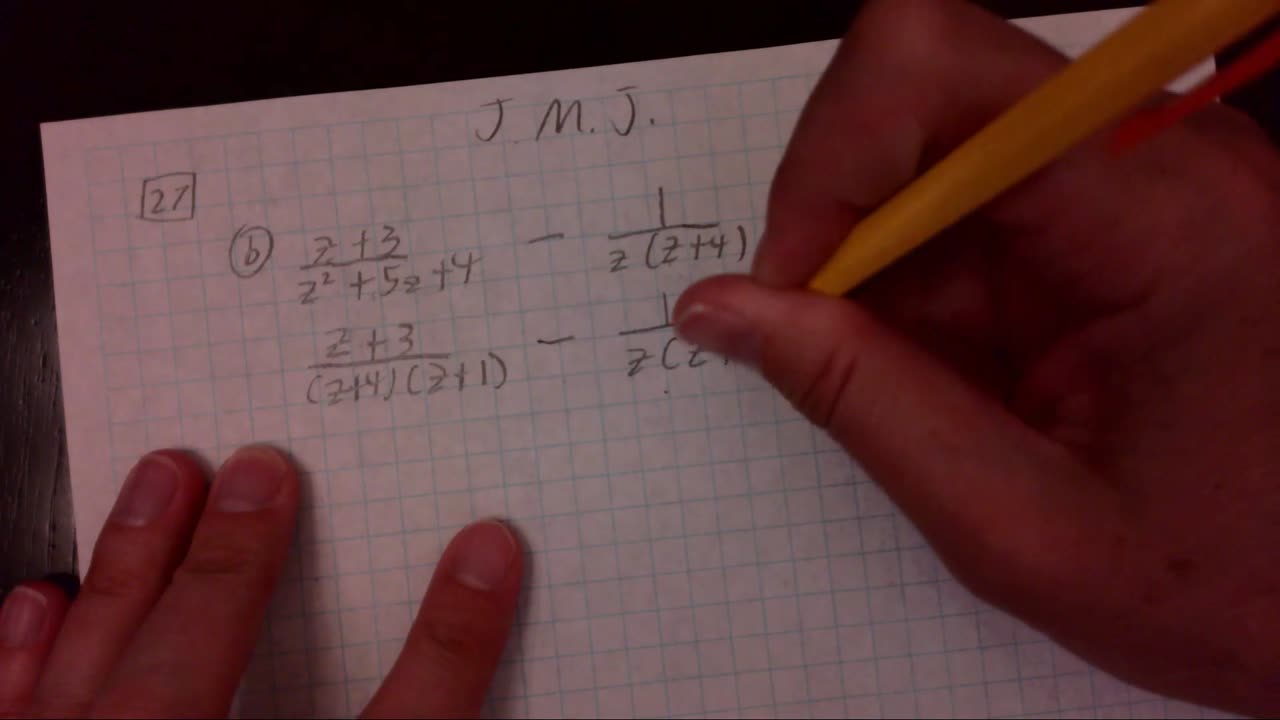 J. M. J.
27
b z + 3 / z² + 5z + 4 − 1 / z (z + 4)
z + 3 / (z+4) (z + 1) − 1 / z (z